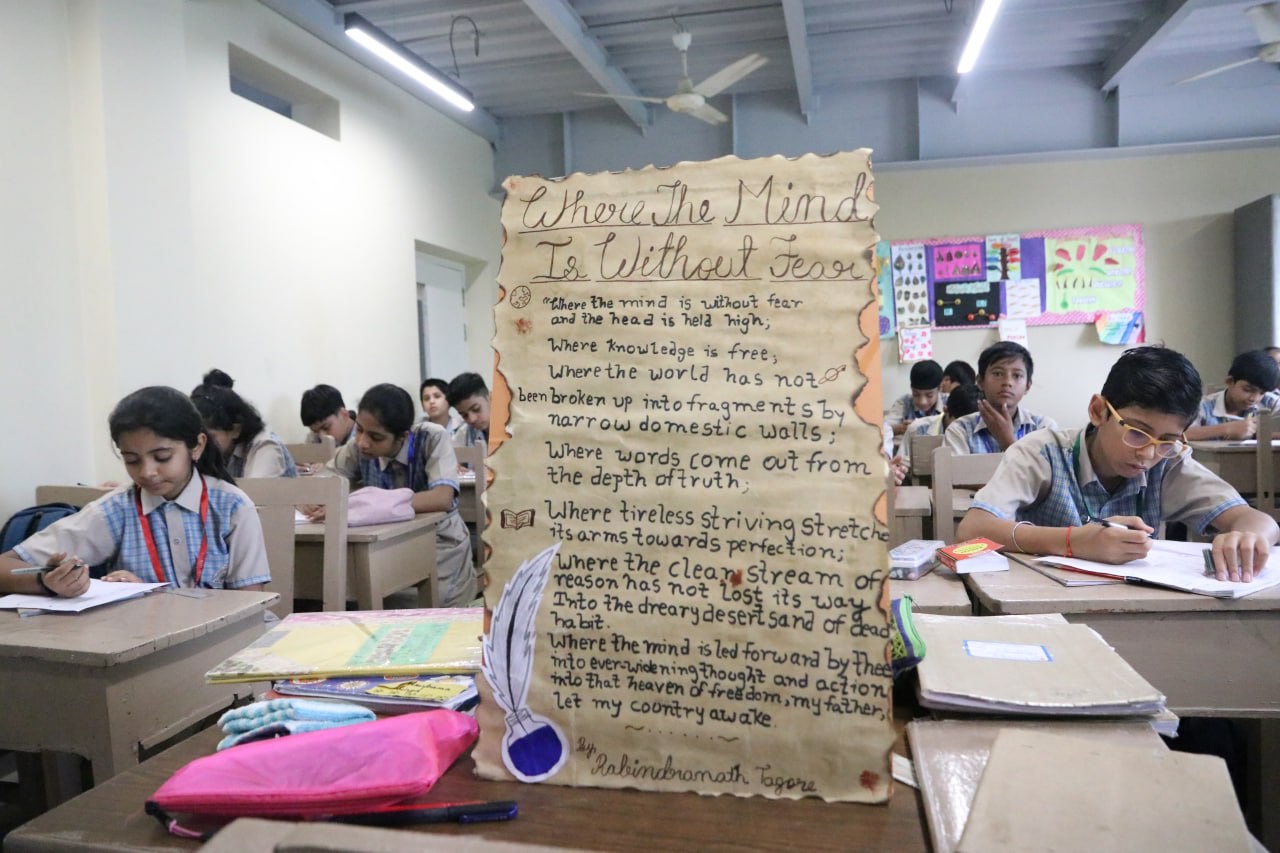 Where The Mind
Is Without Fear
"Where the mind is without fear
and the head is held high;
Where knowledge is free;
Where the world has not
been broken up into fragments by
narrow domestic walls;
Where words come out from
the depth of truth;
Where tireless striving stretche
its arms towards perfection;
Where the clear stream of
reason has not lost its way
Into the dreary desert sand of dead
habit.
Where the mind is led forward by thee
into ever-widening thought and action
into that heaven of freedom, my father,
let my country awake.
By,
Rabindranath Tagore